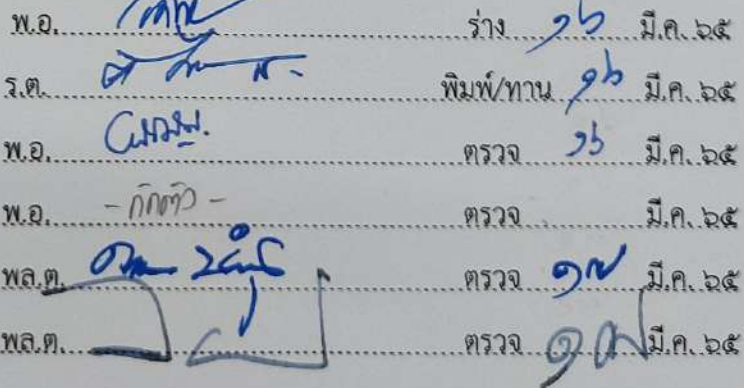 พ.อ. ร่าง ๑๖ มี.ค. ๖๕
ร.ต. พิมพ์/ทาน ๑๖ มี.ค. ๖๕
พ.อ. ตรวจ ๑๖ มี.ค. ๖๕
พ.อ. - กักตัว - ตรวจ มี.ค. ๖๕
พล.ต. ตรวจ ๑๗ มี.ค. ๖๕
พล.ต. ตรวจ ๑๗ มี.ค. ๖๕